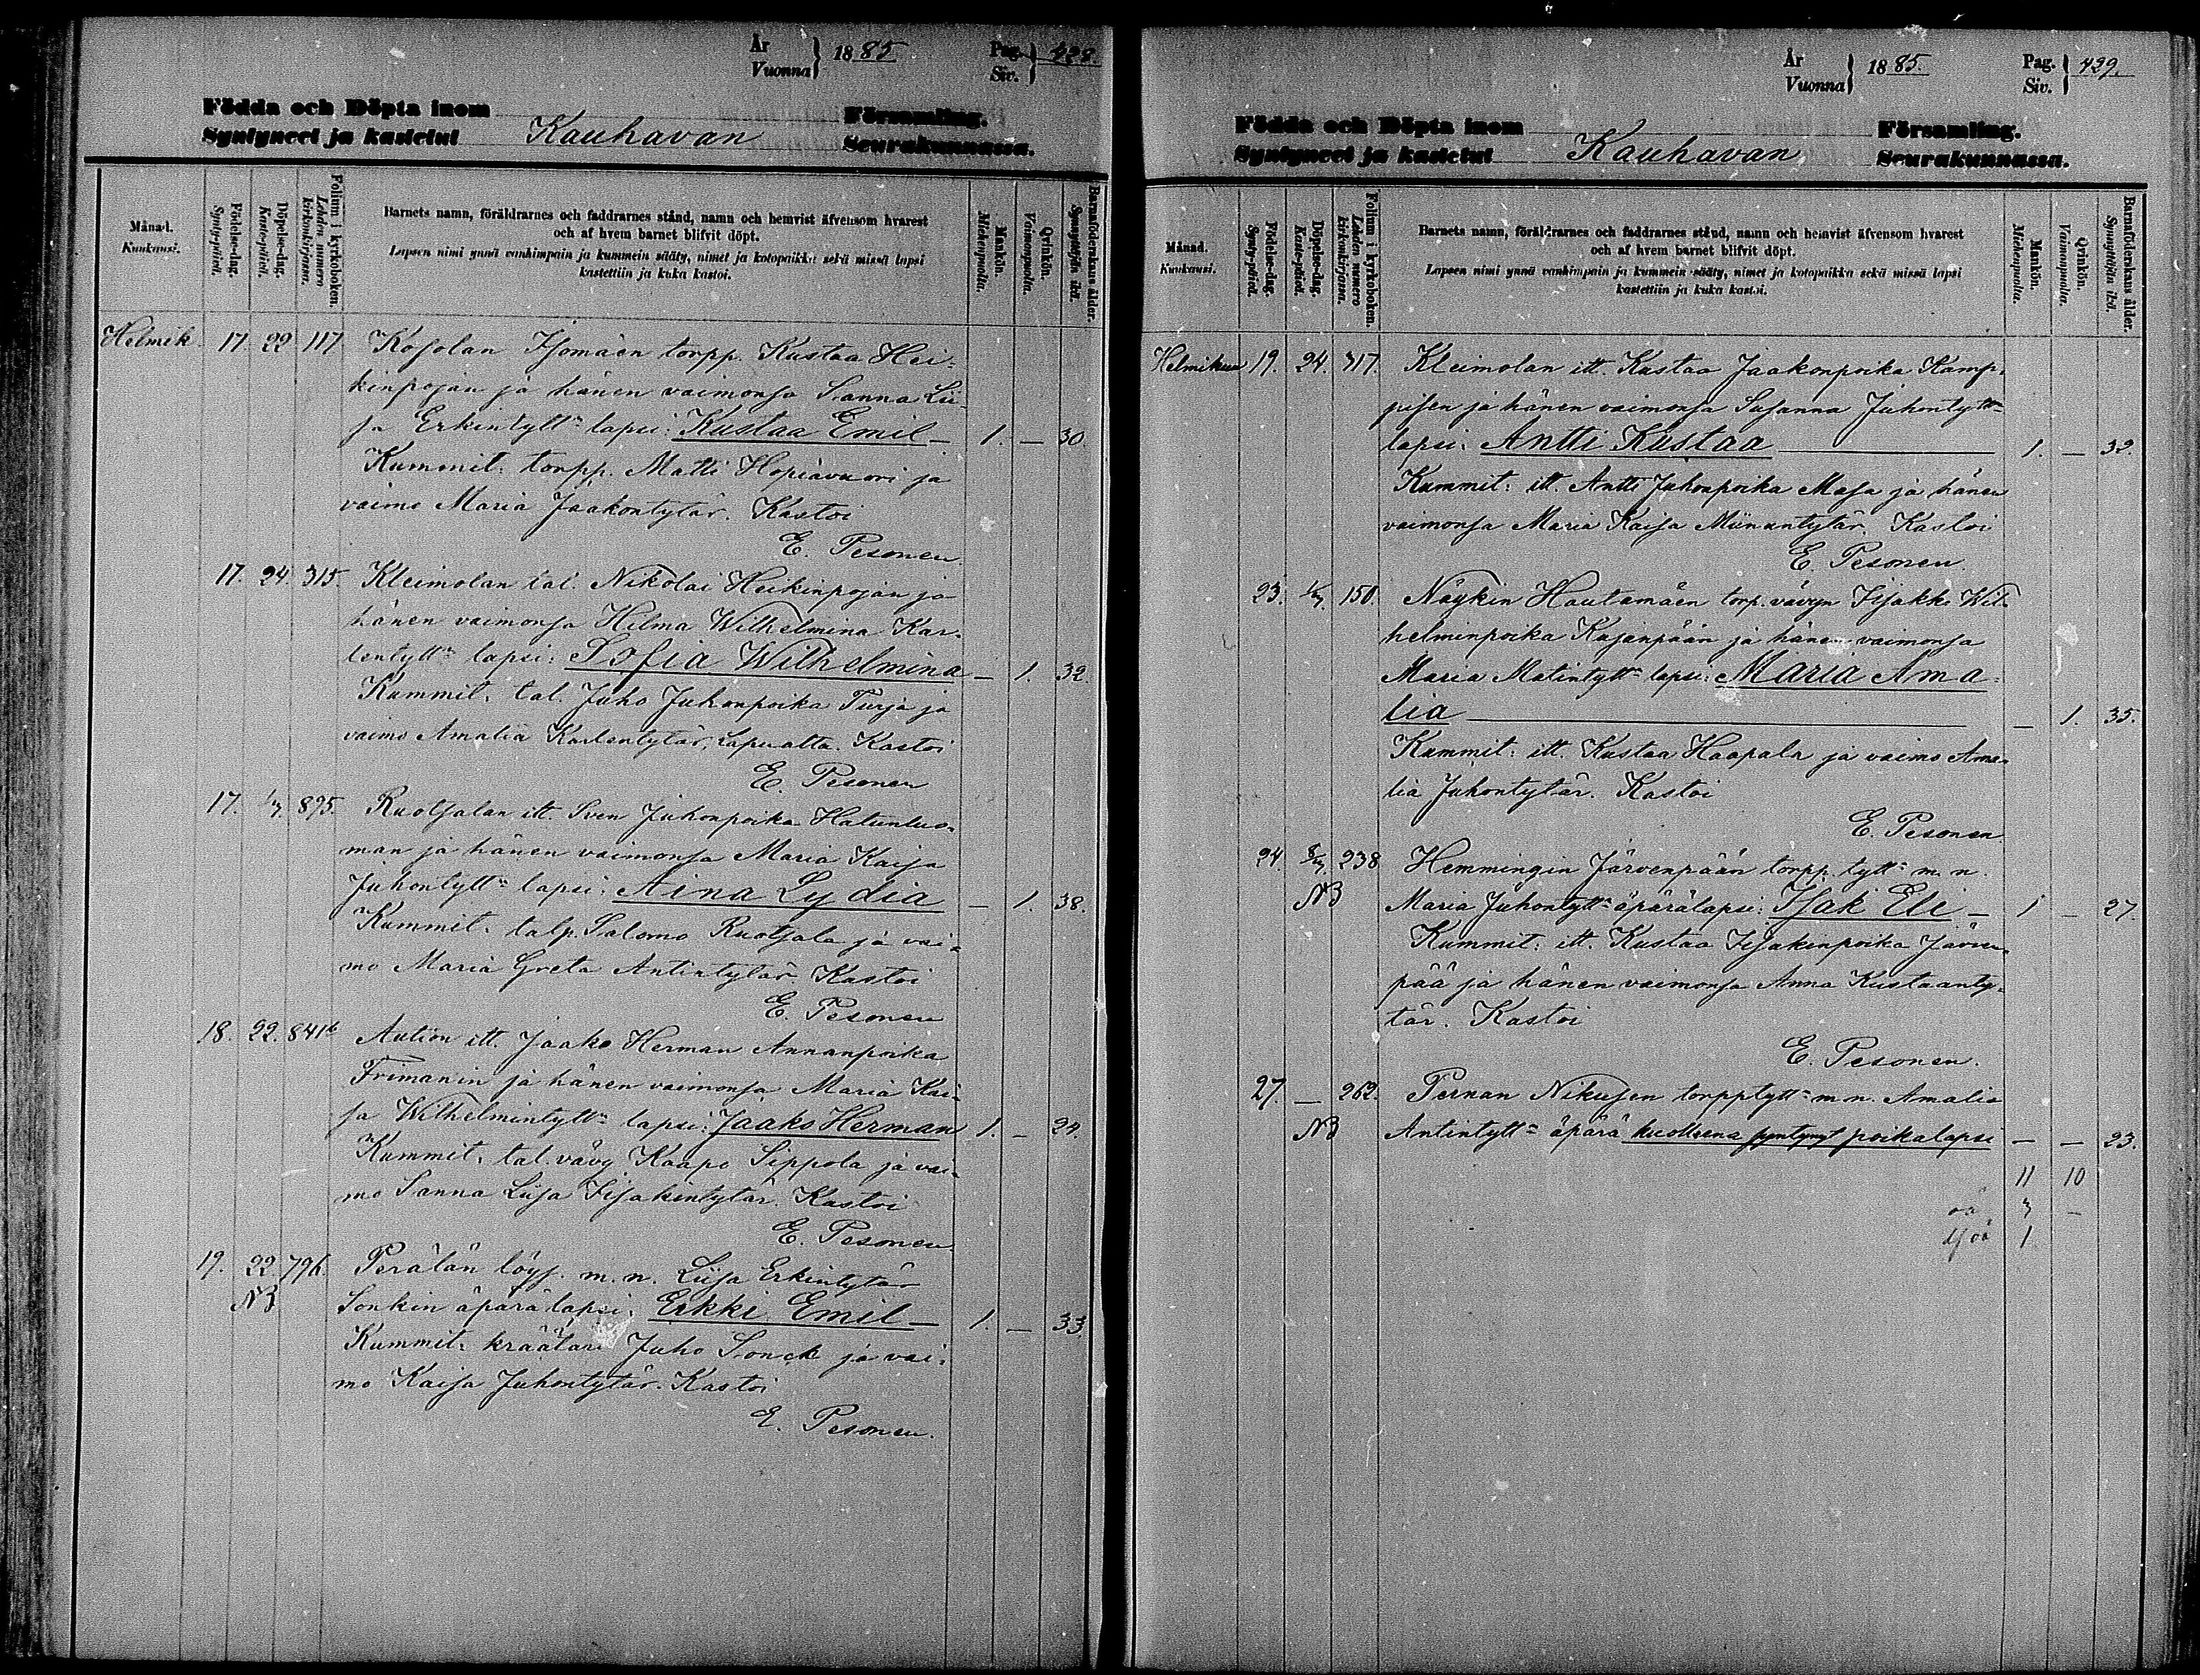 År
Vuonna } 1885 Pag.
Siv. } 428.
Födda och Döpta inom Församling.
Syntyneet ja kastetut Kauhavan Seurakunnassa.
Månad.
Kuukausi.
Födelse-dag.
Synty-päivä.
Döpelse-dag.
Kaste-päivä.
Folium i kyrkoboken.
Lehden numero kirkonkirjassa.
Barnets namn, föräldrarnes och faddrarnes stånd, namn och hemvist äfvensom hvarest
och af hvem barnet blifvit döpt.
Lapsen nimi ynnä vanhimpain ja kummein sääty, nimet ja kotopaikka sekä missä lapsi
kastettiin ja kuka kastoi.
Mankön.
Miehenpuolia.
Qvinkön.
Vaimonpuolia.
Barnaföderskans ålder.
Synnyttäjän ikä.
Helmik. 17. 22 117 Kosolan Isomäen torpp. Kustaa Hei-
kinpojan ja hänen vaimonsa Sanna Lii-
sa Erkintytt: lapsi: Kustaa Emil — 1. — 30
Kummit: torpp. Matti Hopiavuori ja
vaimo Maria Jaakontytär. Kastoi
E. Pesonen.
17. 24. 315. Kleimolan tal. Nikolai Heikinpojan ja
hänen vaimonsa Hilma Wilhelmina Kar-
lentytt: lapsi: Sofia Wilhelmina — 1. 32.
Kummit: tal. Juho Juhonpoika Turja ja
vaimo Amalia Karlentytär, Lapualta. Kastoi
E. Pesonen
17. 1/3. 895. Ruotsalan itt. Sven Juhonpoika Hatunluo-
man ja hänen vaimonsa Maria Kaisa
Juhontytt: lapsi: Aina Lydia — 1. 38.
Kummit: talp. Salomo Ruotsala ja vai-
mo Maria Greta Antintytär. Kastoi
E. Pesonen
18. 22. 841b Aution itt. Jaako Herman Annanpoika
Frimanin ja hänen vaimonsa Maria Kai-
sa Wilhelmintytt: lapsi: Jaako Herman 1. — 24.
Kummit: tal. vävy Kaapo Sippola ja vai-
mo Sanna Liisa Iisakintytär. Kastoi
E. Pesonen.
19. 22. 796. Perälän löys. m. n. Liisa Erkintytär
NB Sonkin äpärälapsi: Erkki Emil — 1. — 33.
Kummit: kräätäri Juho Sonck ja vai-
mo Kaisa Juhontytär. Kastoi
E. Pesonen.
År
Vuonna } 1885. Pag.
Siv. } 429.
Födda och Döpta inom Församling.
Syntyneet ja kastetut Kauhavan Seurakunnassa.
Månad.
Kuukausi.
Födelse-dag.
Synty-päivä.
Döpelse-dag.
Kaste-päivä.
Folium i kyrkoboken.
Lehden numero kirkonkirjassa.
Barnets namn, föräldrarnes och faddrarnes stånd, namn och hemvist äfvensom hvarest
och af hvem barnet blifvit döpt.
Lapsen nimi ynnä vanhimpain ja kummein sääty, nimet ja kotopaikka sekä missä lapsi
kastettiin ja kuka kastoi.
Mankön.
Miehenpuolia.
Qvinkön.
Vaimonpuolia.
Barnaföderskans ålder.
Synnyttäjän ikä.
Helmikuu 19. 24. 317. Kleimolan itt. Kustaa Jaakonpoika Kamp-
pisen ja hänen vaimonsa Susanna Juhontytt:
lapsi: Antti Kustaa 1. — 32.
Kummit: itt. Antti Juhonpoika Masa ja hänen
vaimonsa Maria Kaisa Miinantytär. Kastoi
E. Pesonen.
23. 1/3. 150. Näykin Hautamäen torp. vävyn Iisakki Wil-
helminpoika Kujanpään ja hänen vaimonsa
Maria Matintytt: lapsi: Maria Ama-
lia — 1. 35.
Kummit: itt. Kustaa Haapala ja vaimo Ama-
lia Juhontytär. Kastoi
E. Pesonen
24. 8/3. 238 Hemmingin Järvenpään torpp. tytt: m. n.
NB Maria Juhontytt: äpärälapsi: Isak Eli — 1 — 27.
Kummit: itt. Kustaa Iisakinpoika Järven-
pää ja hänen vaimonsa Anna Kustaanty-
tär. Kastoi
E. Pesonen.
27. — 262. Pernan Nikusen torpptytt: m n. Amalia
NB Antintytt: äpärä kuolleena syntynyt poikalapsi — — 23.
11 10
oä 3 —
1